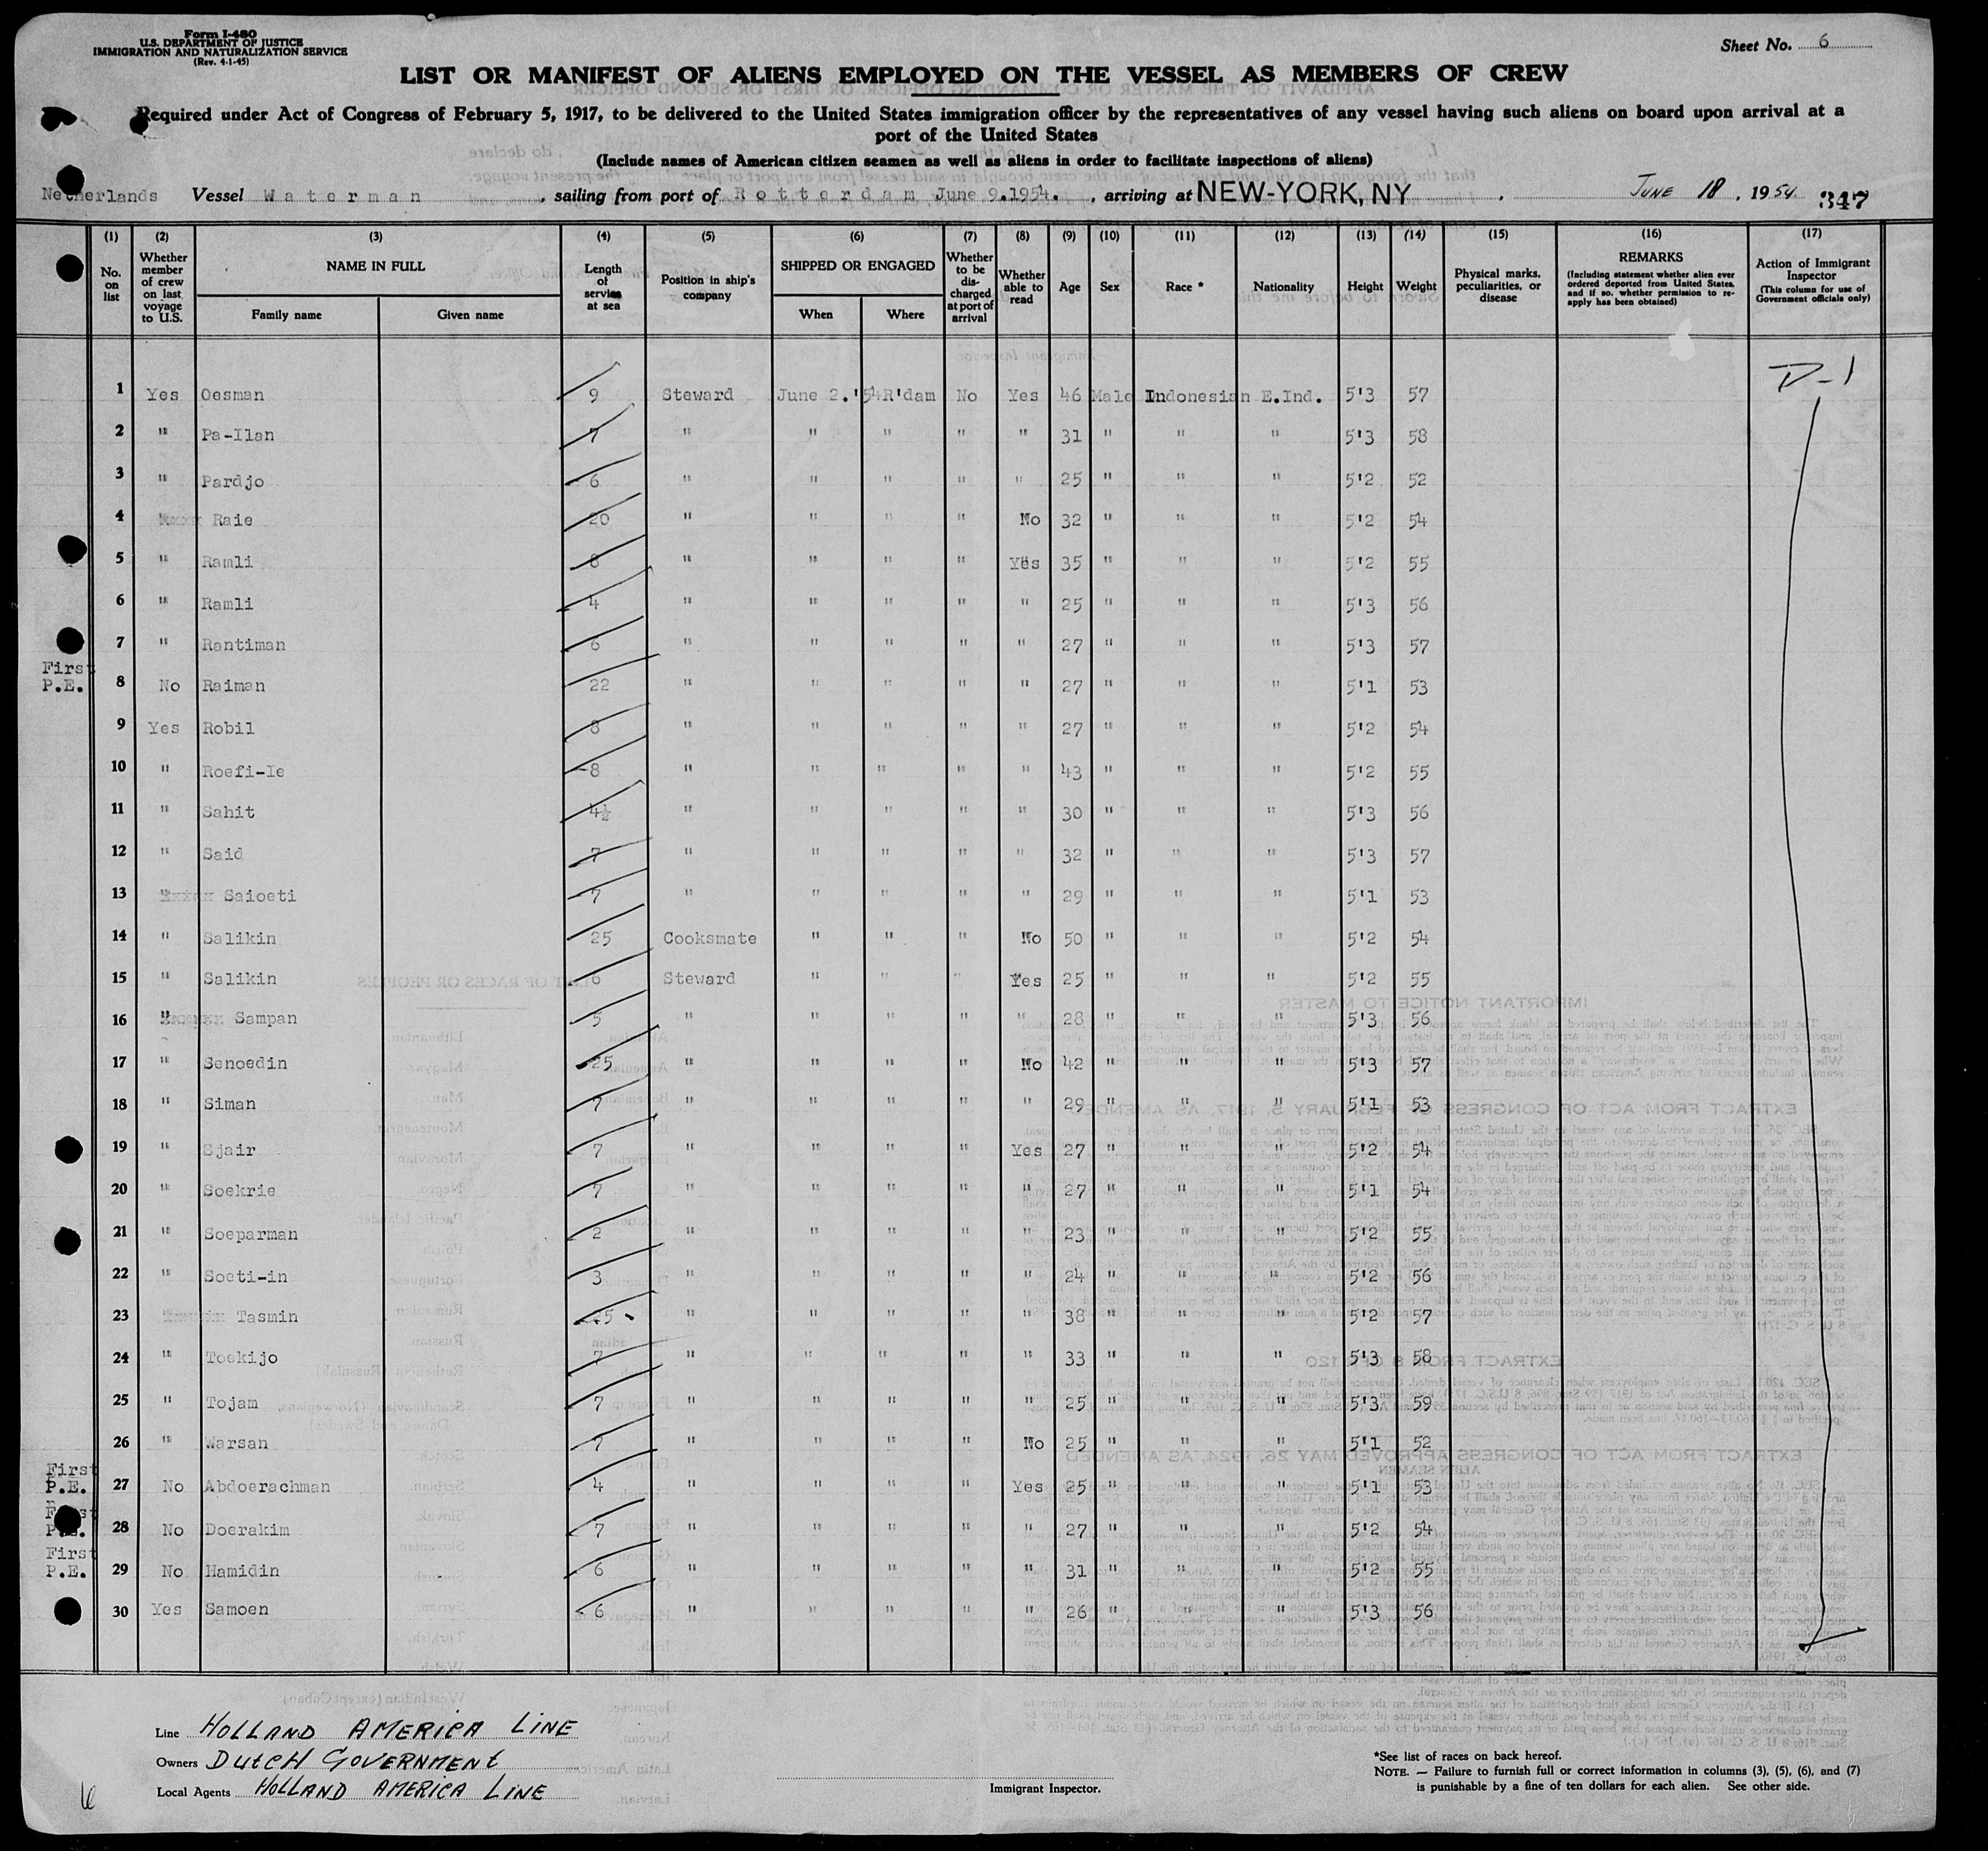 Form I-480
U.S. DEPARTMENT OF JUSTICE
IMMIGRATION AND NATURALIZATION SERVICE
(Rev. 4-1-45)
Sheet No. 6
LIST OR MANIFEST OF ALIENS EMPLOYED ON THE VESSEL AS MEMBERS OF CREW
Required under Act of Congress of February 5, 1917, to be delivered to the United States immigration officer by the representatives of any vessel having such aliens on board upon arrival at a
port of the United States
(Include names of American citizen seamen as well as aliens in order to facilitate inspections of aliens)
Netherlands Vessel Waterman, sailing from port of Rotterdam June 9.1954., arriving at NEW-YORK, NY, JUNE 18, 1954 347
(1) (2) (3) (4) (5) (6) (7) (8) (9) (10) (11) (12) (13) (14) (15) (16) (17)
No. on list
Whether member of crew on last voyage to U.S.
NAME IN FULL
Family name Given name
Length of service at sea
Position in ship's company
SHIPPED OR ENGAGED
When Where
Whether to be discharged at port of arrival
Whether able to read
Age
Sex
Race *
Nationality
Height
Weight
Physical marks, peculiarities, or disease
REMARKS
(Including statement whether alien ever ordered deported from United States, and if so, whether permission to re-apply has been obtained)
Action of Immigrant Inspector
(This column for use of Government officials only)
D-1
1 Yes Oesman 9 Steward June 2.'54 R'dam No Yes 46 Male Indonesian E.Ind. 5'3 57
2 " Pa-Ilan 7 " " " " " 31 " " " 5'3 58
3 " Pardjo 6 " " " " " 25 " " " 5'2 52
4 " Raie 20 " " " " No 32 " " " 5'2 54
5 " Ramli 8 " " " " Yes 35 " " " 5'2 55
6 " Ramli 4 " " " " " 25 " " " 5'3 56
7 " Rantiman 6 " " " " " 27 " " " 5'3 57
First
P.E. 8 No Raiman 22 " " " " " 27 " " " 5'1 53
9 Yes Robil 8 " " " " " 27 " " " 5'2 54
10 " Roefi-Ie 8 " " " " " 43 " " " 5'2 55
11 " Sahit 4½ " " " " " 30 " " " 5'3 56
12 " Said 7 " " " " " 32 " " " 5'3 57
13 " Saioeti 7 " " " " " 29 " " " 5'1 53
14 " Salikin 25 Cooksmate " " " No 50 " " " 5'2 54
15 " Salikin 6 Steward " " " Yes 25 " " " 5'2 55
16 " Sampan 5 " " " " " 28 " " " 5'3 56
17 " Senoedin 25 " " " " No 42 " " " 5'3 57
18 " Siman 7 " " " " " 29 " " " 5'1 53
19 " Sjair 7 " " " " Yes 27 " " " 5'2 54
20 " Soekrie 7 " " " " " 27 " " " 5'1 54
21 " Soeparman 2 " " " " " 23 " " " 5'2 55
22 " Soeti-in 3 " " " " " 24 " " " 5'2 56
23 Tasmin 25 " " " " " 38 " " " 5'2 57
24 " Toekijo 7 " " " " " 33 " " " 5'3 58
25 " Tojam 7 " " " " " 25 " " " 5'3 59
26 " Warsan 7 " " " " No 25 " " " 5'1 52
First
P.E. 27 No Abdoerachman 4 " " " " Yes 25 " " " 5'1 53
First
P.E. 28 No Doerakim 7 " " " " " 27 " " " 5'2 54
First
P.E. 29 No Hamidin 6 " " " " " 31 " " " 5'2 55
30 Yes Samoen 6 " " " " " 26 " " " 5'3 56
Line HOLLAND AMERICA LINE
Owners DUTCH GOVERNMENT
Local Agents HOLLAND AMERICA LINE
Immigrant Inspector.
*See list of races on back hereof.
NOTE. — Failure to furnish full or correct information in columns (3), (5), (6), and (7)
is punishable by a fine of ten dollars for each alien. See other side.